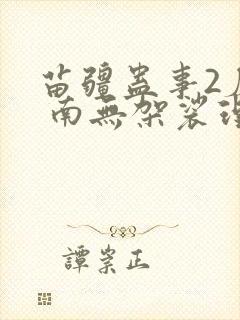 苗疆蠱事2
南無架裟
譚崇正